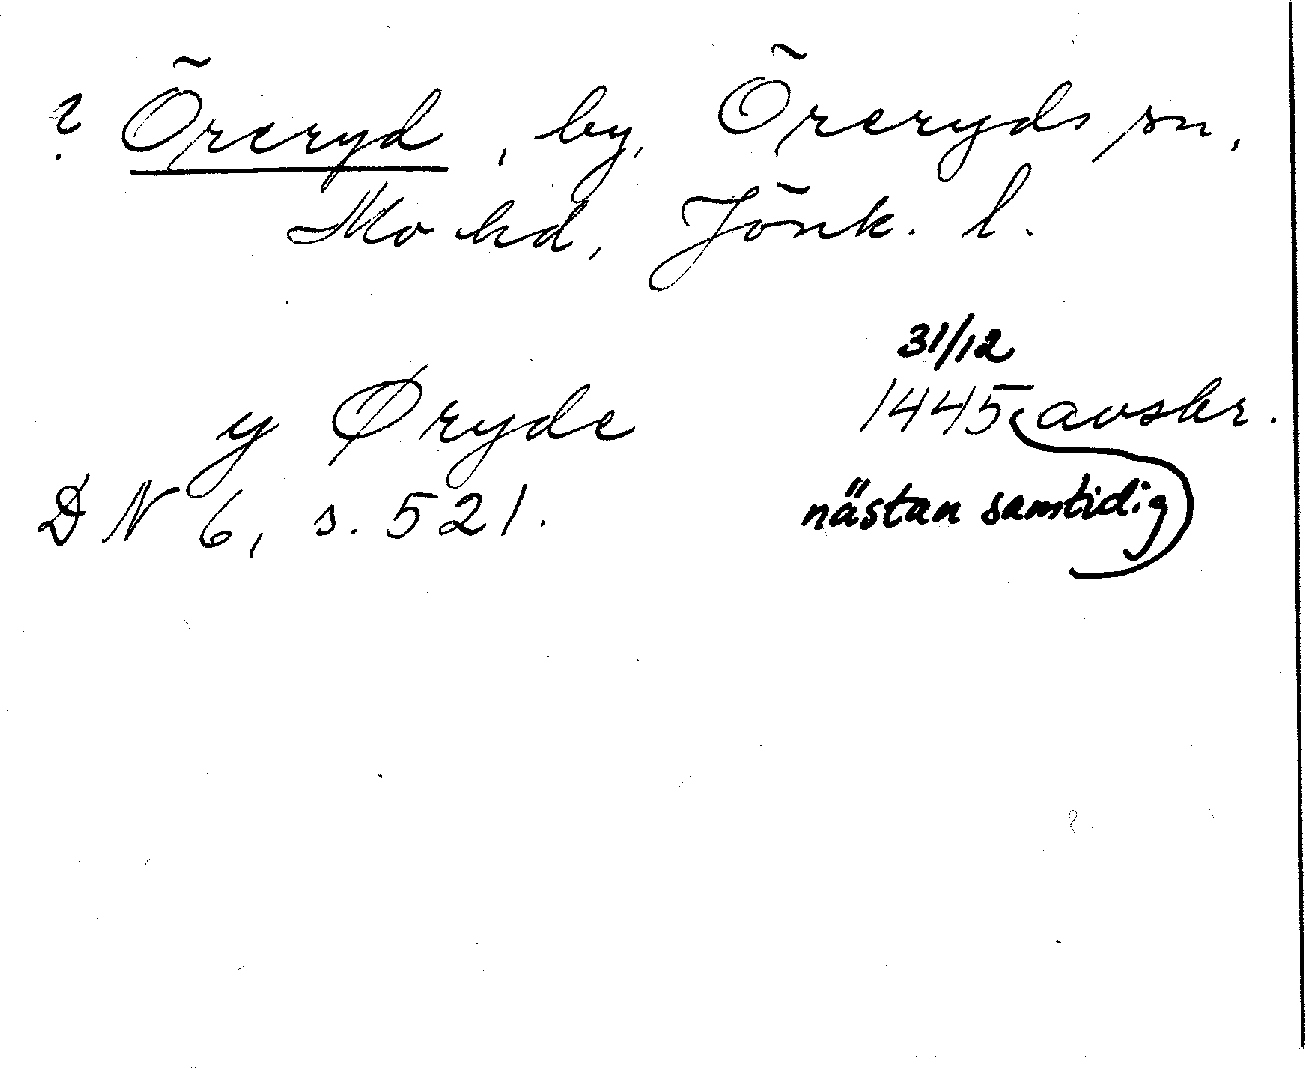 ? Öreryd, by, Öreryds sn,
Mo hd, Jönk. l.
31/12
y Øryde 1445 avskr.
DN 6, s. 521. nästan samtidig